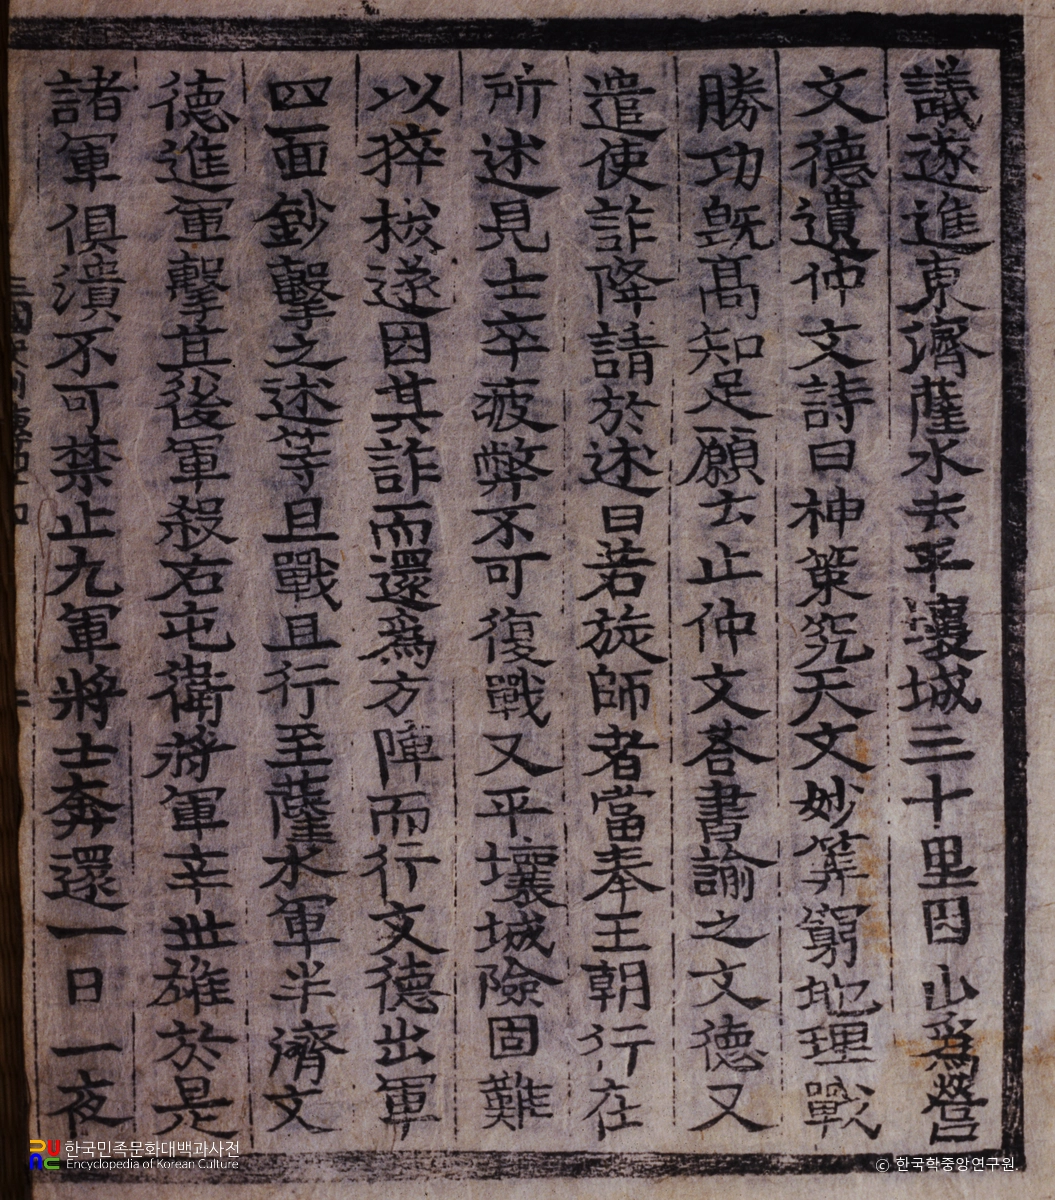 議遂進東濟薩水去平壤城三十里因山爲營
文德遺仲文詩曰神策究天文妙筭窮地理戰
勝功旣髙知足願去止仲文荅書諭之文德又
遣使詐降請於述曰若旋師者當奉王朝行在
所述見士卒疲弊不可復戰又平壤城險固難
以猝拔遂因其詐而還爲方陣而行文德出軍
四面鈔擊之述等且戰且行至薩水軍半濟文
德進軍擊其後軍殺右屯衛將軍辛世雄於是
諸軍俱潰不可禁止九軍將士奔還一日一夜
한국민족문화대백과사전
Encyclopedia of Korean Culture
© 한국학중앙연구원